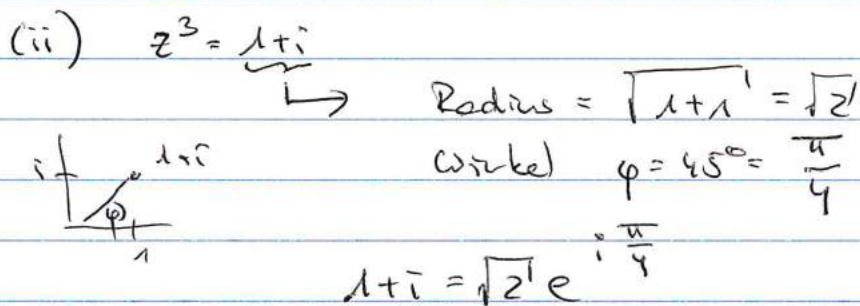 (ii) z³ = 1+i
→ Radius = √1+1 = √2
Winkel φ = 45° = π/4
i 1+i
φ
1
1+i = √2 e^{i π/4}